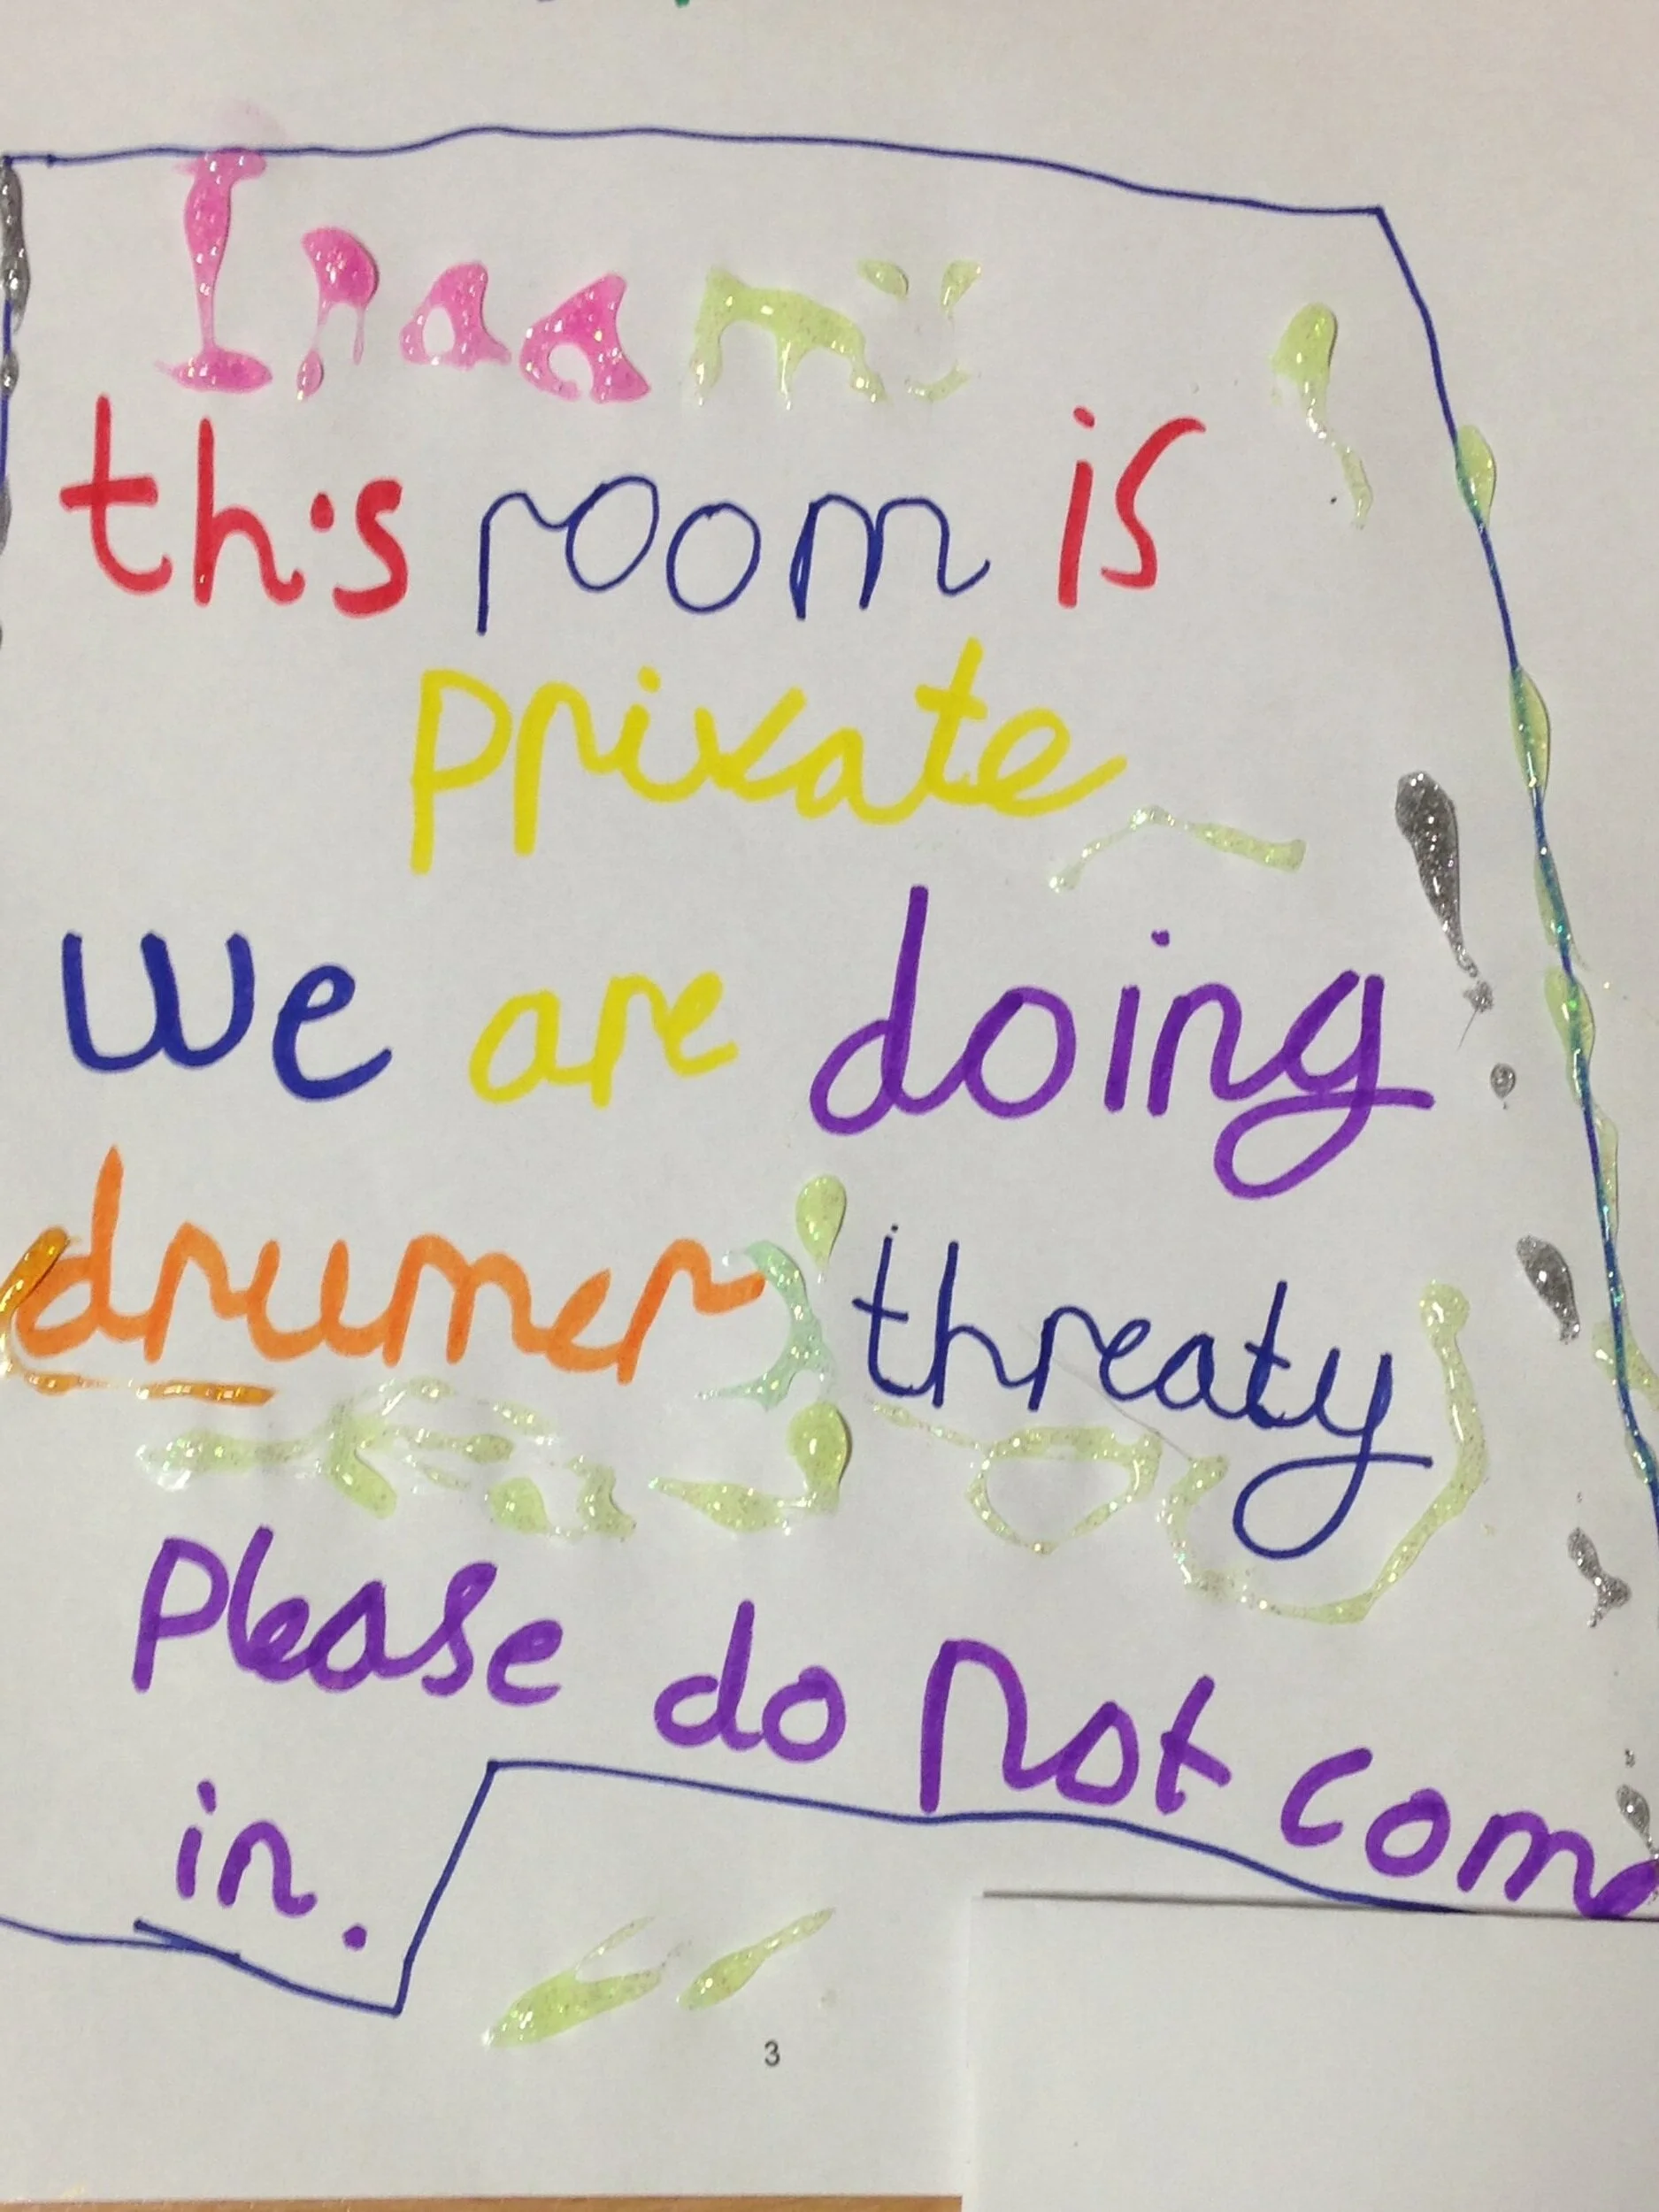 this room is
private
we are doing
drumer threaty
Please do not come
in.
3